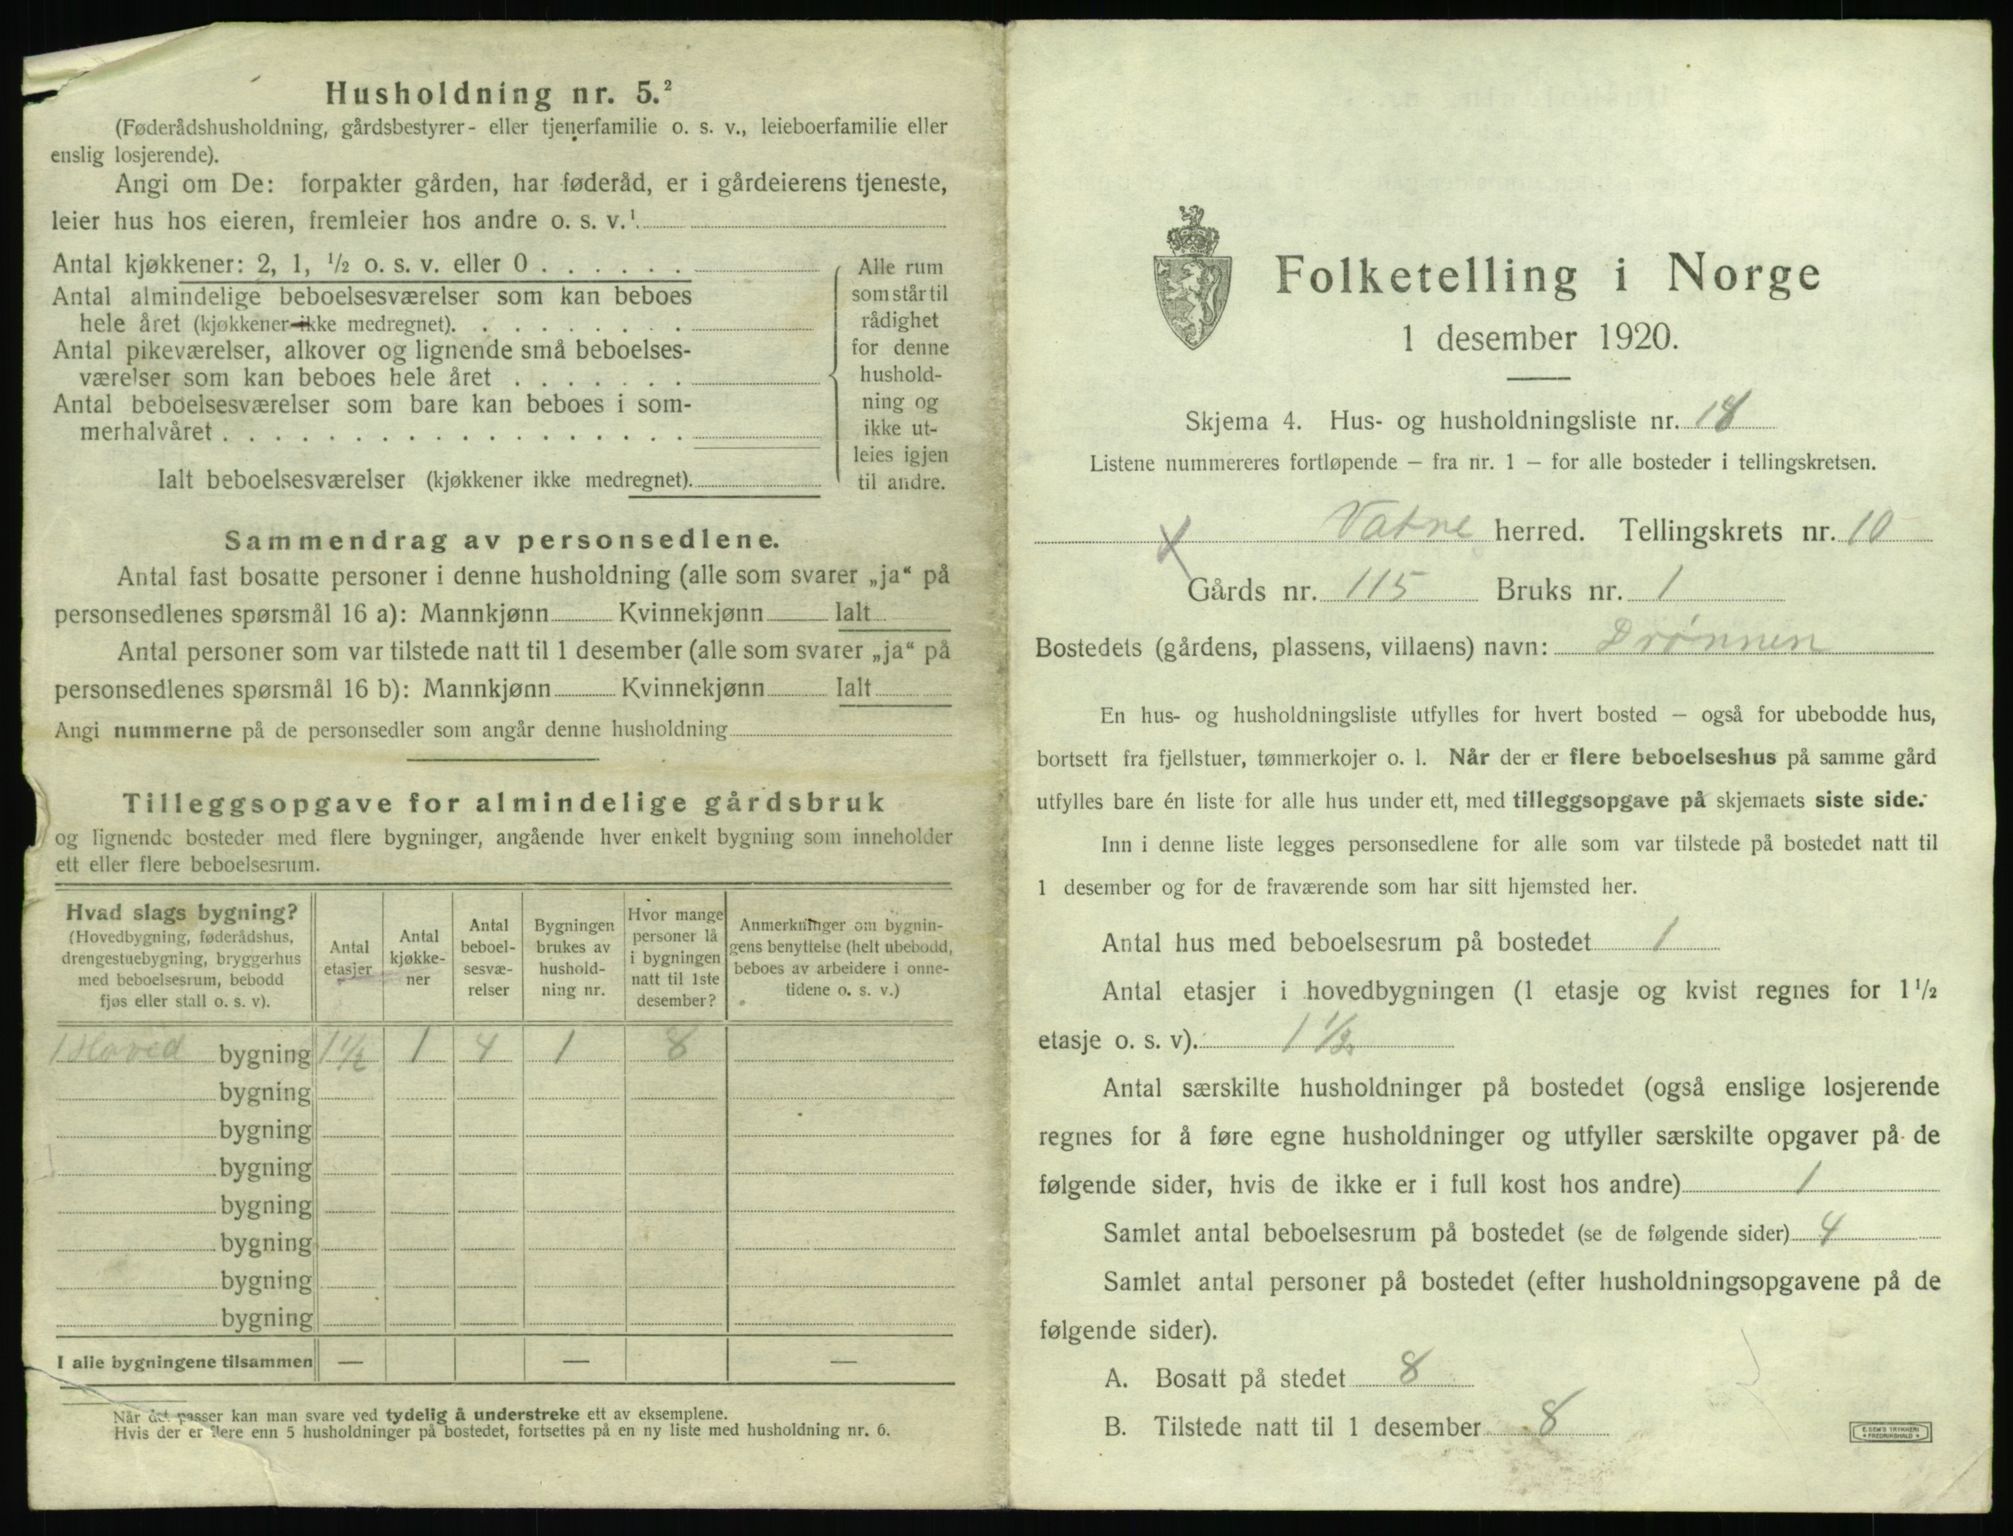 Husholdning nr. 5.²
(Føderådshusholdning, gårdsbestyrer- eller tjenerfamilie o. s. v., leieboerfamilie eller
enslig losjerende).
Angi om De: forpakter gården, har føderåd, er i gårdeierens tjeneste,
leier hus hos eieren, fremleier hos andre o. s. v.¹
Antal kjøkkener: 2, 1, ½ o. s. v. eller 0 . . . . . .
Antal almindelige beboelsesværelser som kan beboes
hele året (kjøkkener ikke medregnet). . . . . . . . .
Antal pikeværelser, alkover og lignende små beboelses-
værelser som kan beboes hele året . . . . . . .
Antal beboelsesværelser som bare kan beboes i som-
merhalvåret . . . . . . . . . . . . . . . . . .
Ialt beboelsesværelser (kjøkkener ikke medregnet).
Alle rum
som står til
rådighet
for denne
hushold-
ning og
ikke ut-
leies igjen
til andre.
Sammendrag av personsedlene.
Antal fast bosatte personer i denne husholdning (alle som svarer „ja“ på
personsedlenes spørsmål 16 a): Mannkjønn Kvinnekjønn Ialt
Antal personer som var tilstede natt til 1 desember (alle som svarer „ja“ på
personsedlenes spørsmål 16 b): Mannkjønn Kvinnekjønn Ialt
Angi nummerne på de personsedler som angår denne husholdning
Tilleggsopgave for almindelige gårdsbruk
og lignende bosteder med flere bygninger, angående hver enkelt bygning som inneholder
ett eller flere beboelsesrum.
Hvad slags bygning?
(Hovedbygning, føderådshus,
drengestuebygning, bryggerhus
med beboelsesrum, bebodd
fjøs eller stall o. s. v).
Antal
etasjer
Antal
kjøkke-
ner
Antal
beboel-
sesvæ-
relser
Bygningen
brukes av
hushold-
ning nr.
Hvor mange
personer lå
i bygningen
natt til 1ste
desember?
Anmerkninger om bygnin-
gens benyttelse (helt ubebodd,
beboes av arbeidere i onne-
tidene o. s. v.)
1 Hoved bygning 1½ 1 4 1 8
bygning
bygning
bygning
bygning
bygning
bygning
bygning
I alle bygningene tilsammen — — —
Når det passer kan man svare ved tydelig å understreke ett av eksemplene.
Hvis der er flere enn 5 husholdninger på bostedet, fortsettes på en ny liste med husholdning nr. 6.
Folketelling i Norge
1 desember 1920.
Skjema 4. Hus- og husholdningsliste nr. 18
Listene nummereres fortløpende – fra nr. 1 – for alle bosteder i tellingskretsen.
Vatne herred. Tellingskrets nr. 10
X Gårds nr. 115 Bruks nr. 1
Bostedets (gårdens, plassens, villaens) navn: Drønnen
En hus- og husholdningsliste utfylles for hvert bosted – også for ubebodde hus,
bortsett fra fjellstuer, tømmerkojer o. l. Når der er flere beboelseshus på samme gård
utfylles bare én liste for alle hus under ett, med tilleggsopgave på skjemaets siste side.
Inn i denne liste legges personsedlene for alle som var tilstede på bostedet natt til
1 desember og for de fraværende som har sitt hjemsted her.
Antal hus med beboelsesrum på bostedet 1
Antal etasjer i hovedbygningen (1 etasje og kvist regnes for 1½
etasje o. s. v). 1½
Antal særskilte husholdninger på bostedet (også enslige losjerende
regnes for å føre egne husholdninger og utfyller særskilte opgaver på de
følgende sider, hvis de ikke er i full kost hos andre) 1
Samlet antal beboelsesrum på bostedet (se de følgende sider) 4
Samlet antal personer på bostedet (efter husholdningsopgavene på de
følgende sider).
A. Bosatt på stedet 8
B. Tilstede natt til 1 desember 8
E. SEM'S TRYKKERI
FREDRIKSHALD